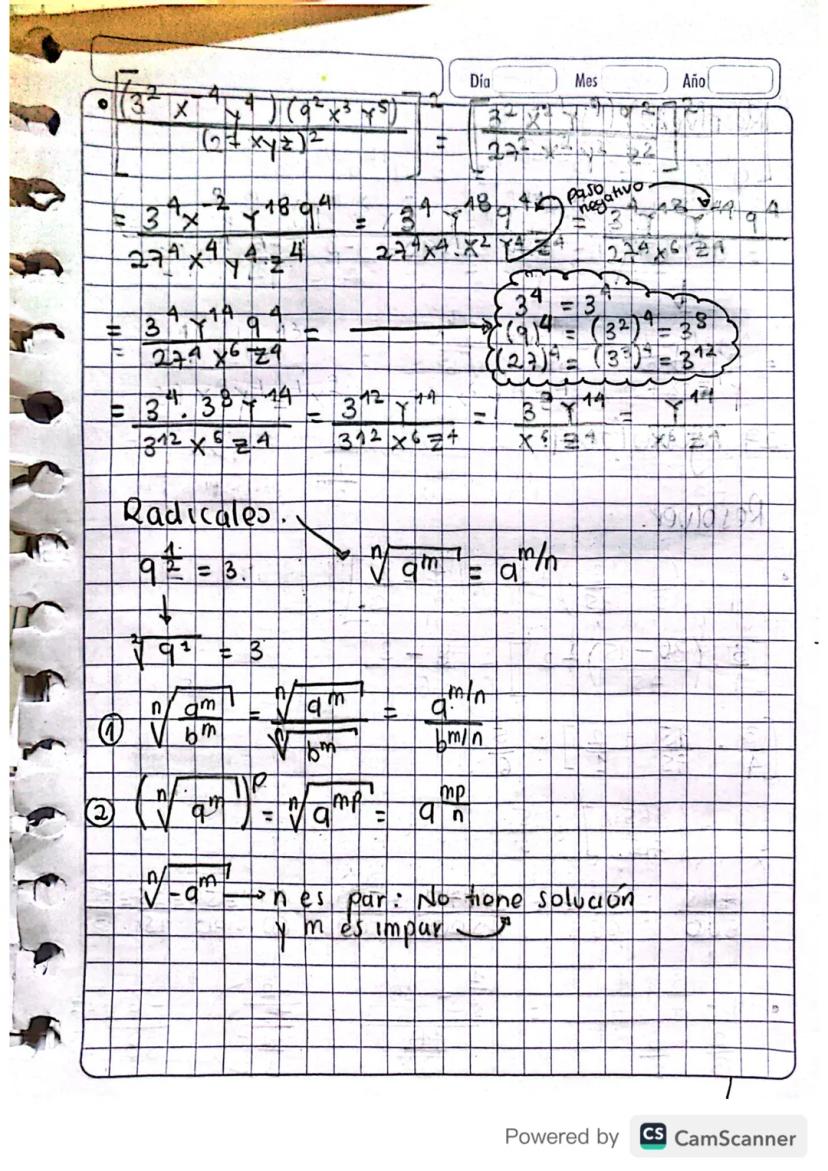 Día Mes Año
• [(3² x⁻⁴ y⁴) (9² x³ y⁵) / (27 xyz)²]² =
= 3⁴ x⁻² y¹⁸ 9⁴ / 27⁴ x⁴ y⁴ z⁴ = 3⁴ y¹⁸ 9⁴ / 27⁴ x⁴ · x² y⁴ z⁴ = paso negativo
= 3⁴ y¹⁴ 9⁴ / 27⁴ x⁶ z⁴ = →
3⁴ = 3⁴
(9)⁴ = (3²)⁴ = 3⁸
(27)⁴ = (3³)⁴ = 3¹²
= 3⁴ · 3⁸ y¹⁴ / 3¹² x⁶ z⁴ = 3¹² y¹⁴ / 3¹² x⁶ z⁴ = = y¹⁴ / x⁶ z⁴
Radicales.
9^(1/2) = 3. ⁿ√(a^m) = a^(m/n)
↓
²√(9¹) = 3
① ⁿ√(a^m / b^m) = ⁿ√(a^m) / ⁿ√(b^m) = a^(m/n) / b^(m/n)
② (ⁿ√(a^m))^p = ⁿ√(a^(mp)) = a^(mp/n)
ⁿ√(-a^m) → n es par: No tiene solución
y m es impar
Powered by CS CamScanner